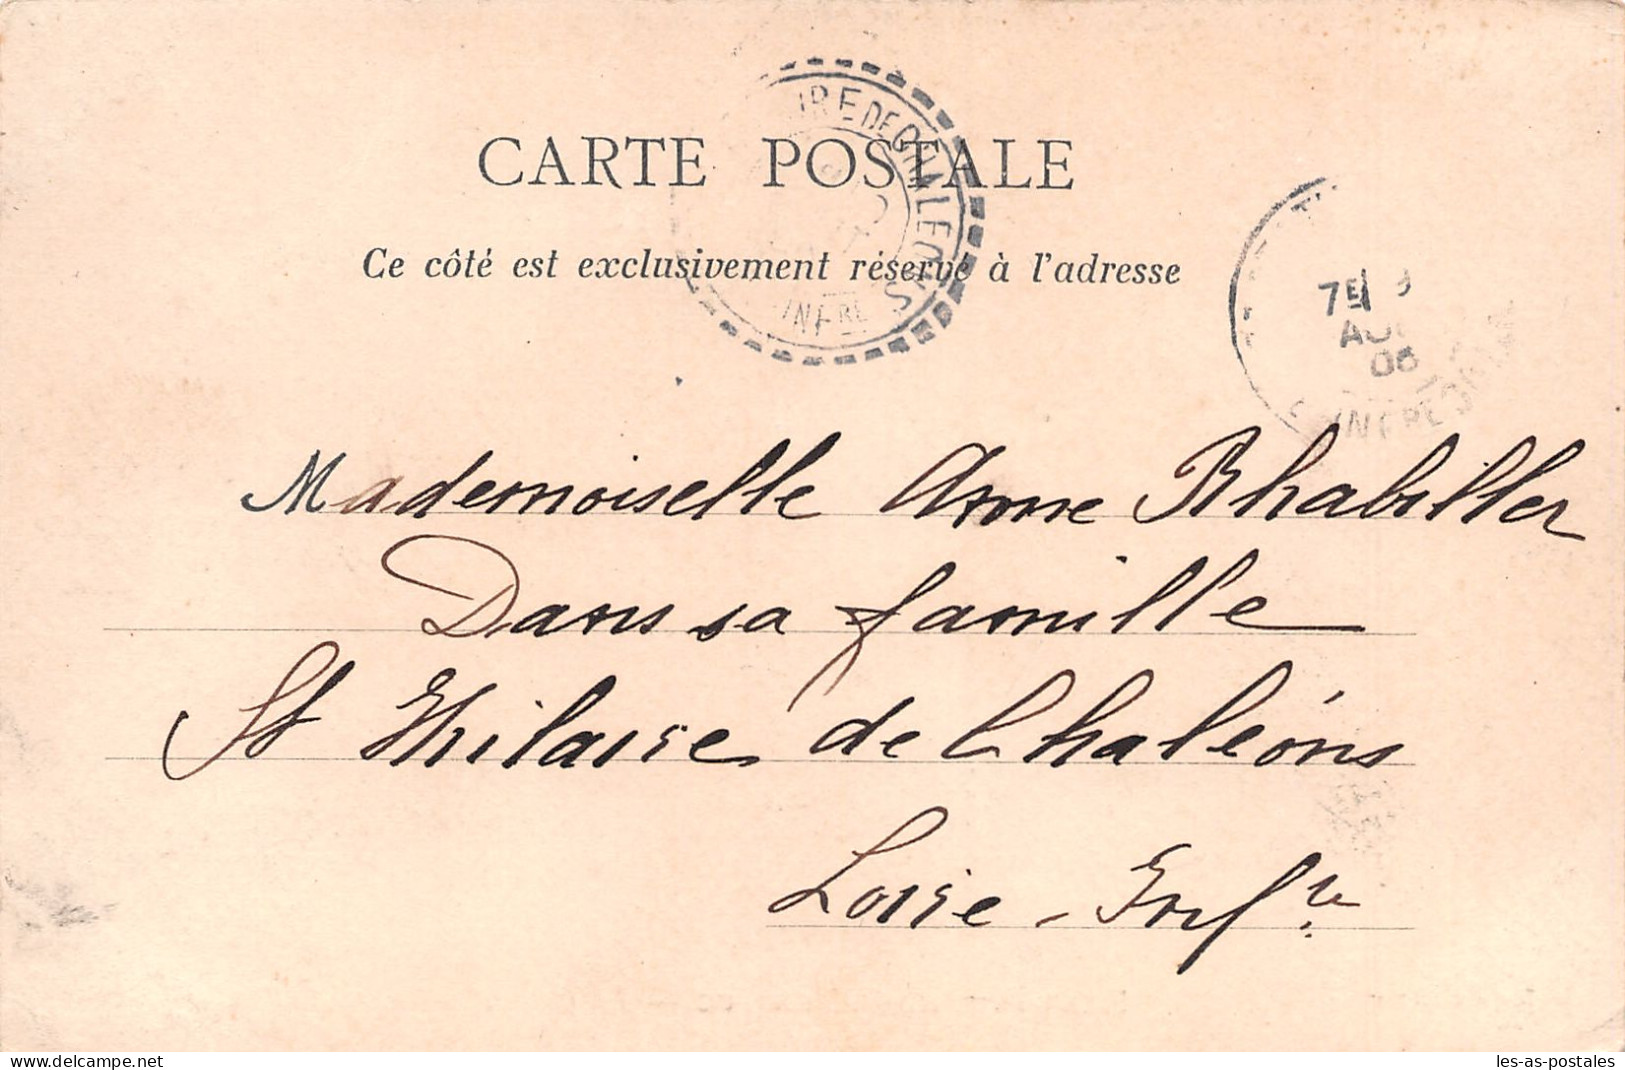 CARTE POSTALE
Ce côté est exclusivement réservé à l'adresse
IRE DE CHALÉONS
INFRE
7E
AOU
06
INFRE
Mademoiselle Anne Rhabiller
Dans sa famille
St Hilaire de Chaléons
Loire-Infre
www.delcampe.net
les-as-postales